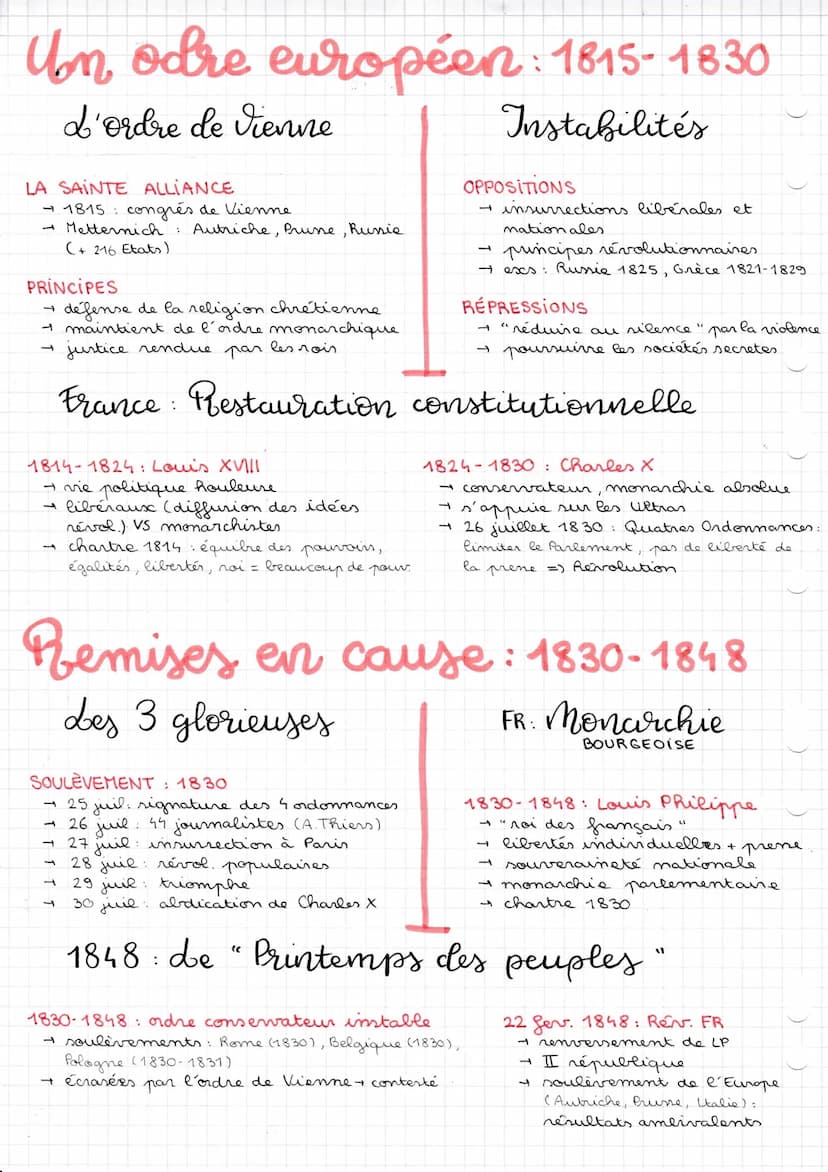 Un odre européen : 1815-1830
L'ordre de Vienne
LA SAINTE ALLIANCE
→ 1815 : congrés de Vienne
→ Metternich : Autriche, Prusse, Russie
(+ 216 Etats)
PRINCIPES
→ défense de la religion chrétienne
→ maintient de l'ordre monarchique
→ justice rendue par les rois
Instabilités
OPPOSITIONS
→ insurrections libérales et
nationales
→ principes révolutionnaires
→ exs : Russie 1825, Grèce 1821-1829
RÉPRESSIONS
→ "réduire au silence" par la violence
→ poursuivre les sociétés secretes
France : Restauration constitutionnelle
1814-1824 : Louis XVIII
→ vie politique houleuse
→ libéraux (diffusion des idées
révol.) VS monarchistes
→ chartre 1814 : équilibre des pouvoirs,
égalités, libertés, roi = beaucoup de pouv.
1824-1830 : Charles X
→ conservateur, monarchie absolue
→ s'appuie sur les Ultras
→ 26 juillet 1830 : Quatres Ordonnances :
limiter le Parlement, pas de liberté de
la presse => Révolution
Remises en cause : 1830-1848
Les 3 glorieuses
SOULÈVEMENT : 1830
→ 25 juil : signature des 4 ordonnances
→ 26 juil : 44 journalistes (A. Thiers)
→ 27 juil : insurrection à Paris
→ 28 juil : révol. populaires
→ 29 juil : triomphe
→ 30 juil : abdication de Charles X
FR : Monarchie
BOURGEOISE
1830-1848 : Louis Philippe
→ "roi des français"
→ libertés individuelles + presse
→ souveraineté nationale
→ monarchie parlementaire
→ chartre 1830
1848 : Le "Printemps des peuples"
1830-1848 : ordre conservateur instable
→ soulèvements : Rome (1830), Belgique (1830),
Pologne (1830-1831)
→ écrasées par l'ordre de Vienne → contesté
22 fev. 1848 : Rév. FR
→ renversement de LP
→ II république
→ soulèvement de l'Europe
(Autriche, Prusse, Italie) :
résultats ambivalents